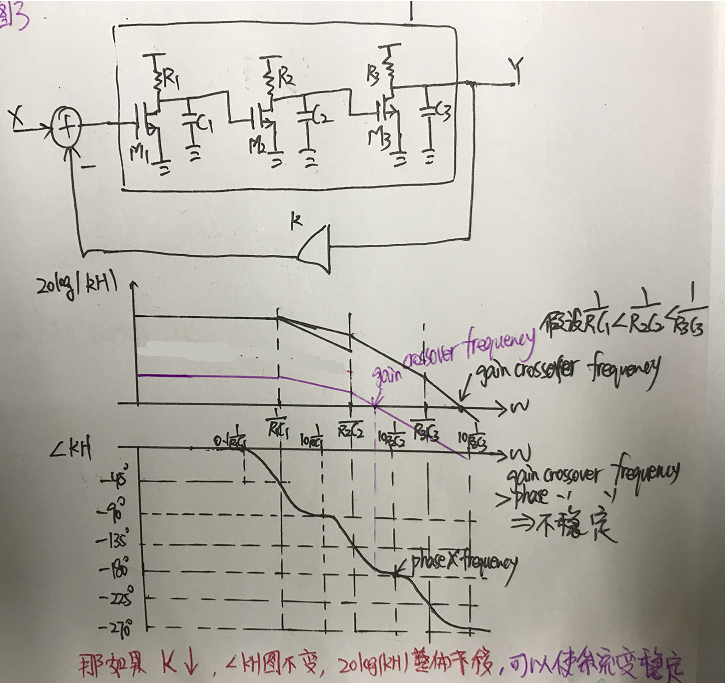 图3
R₁ R₂ R₃ Y
X + C₁ C₂ C₃
M₁ M₂ M₃
−
K
20log|kH|
假设 1/R₁C₁ < 1/R₂C₂ < 1/R₃C₃
gain crossover frequency
gain crossover frequency
ω
1/R₁C₁ 1/R₂C₂ 1/R₃C₃
0.1 1/R₁C₁ 10 1/R₁C₁ 10 1/R₂C₂ 10 1/R₃C₃
∠KH ω
-45°
-90°
-135°
-180°
-225°
-270°
gain crossover frequency
> phase 〃 〃
⇒ 不稳定
phase X frequency
那如果 K↓, ∠KH图不变, 20log|KH| 整体下移, 可以使系统变稳定